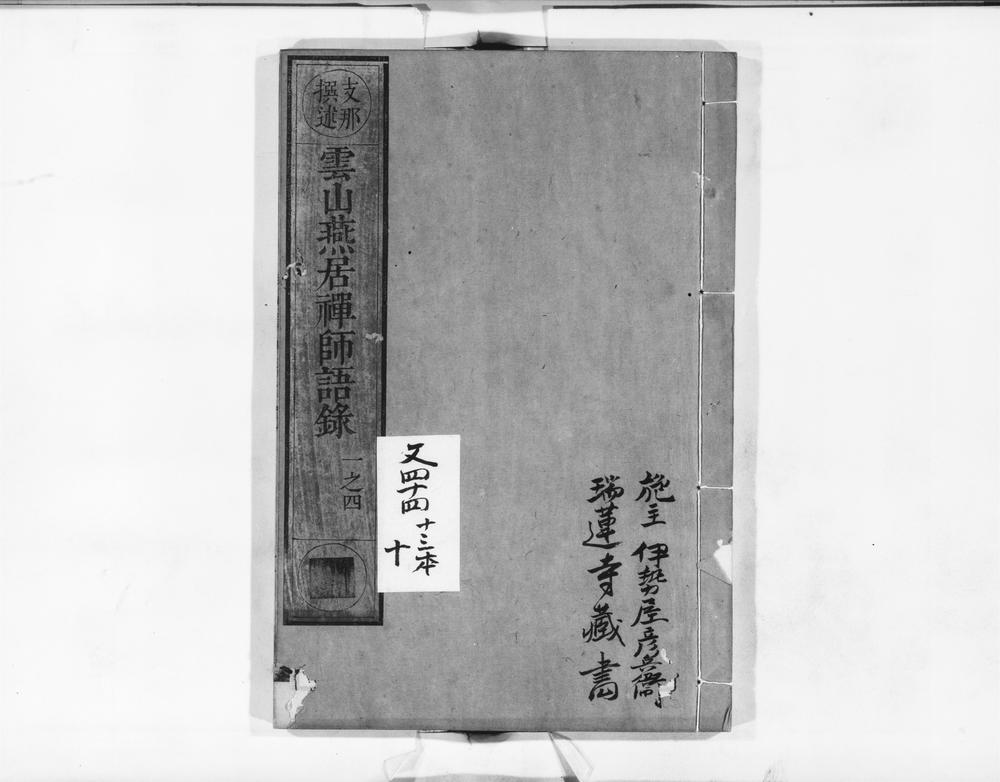 施主 伊勢屋彦兵衛
瑞蓮寺藏書
又四十四
十三本
十
支那
撰述
雲山燕居禪師語錄
一之四